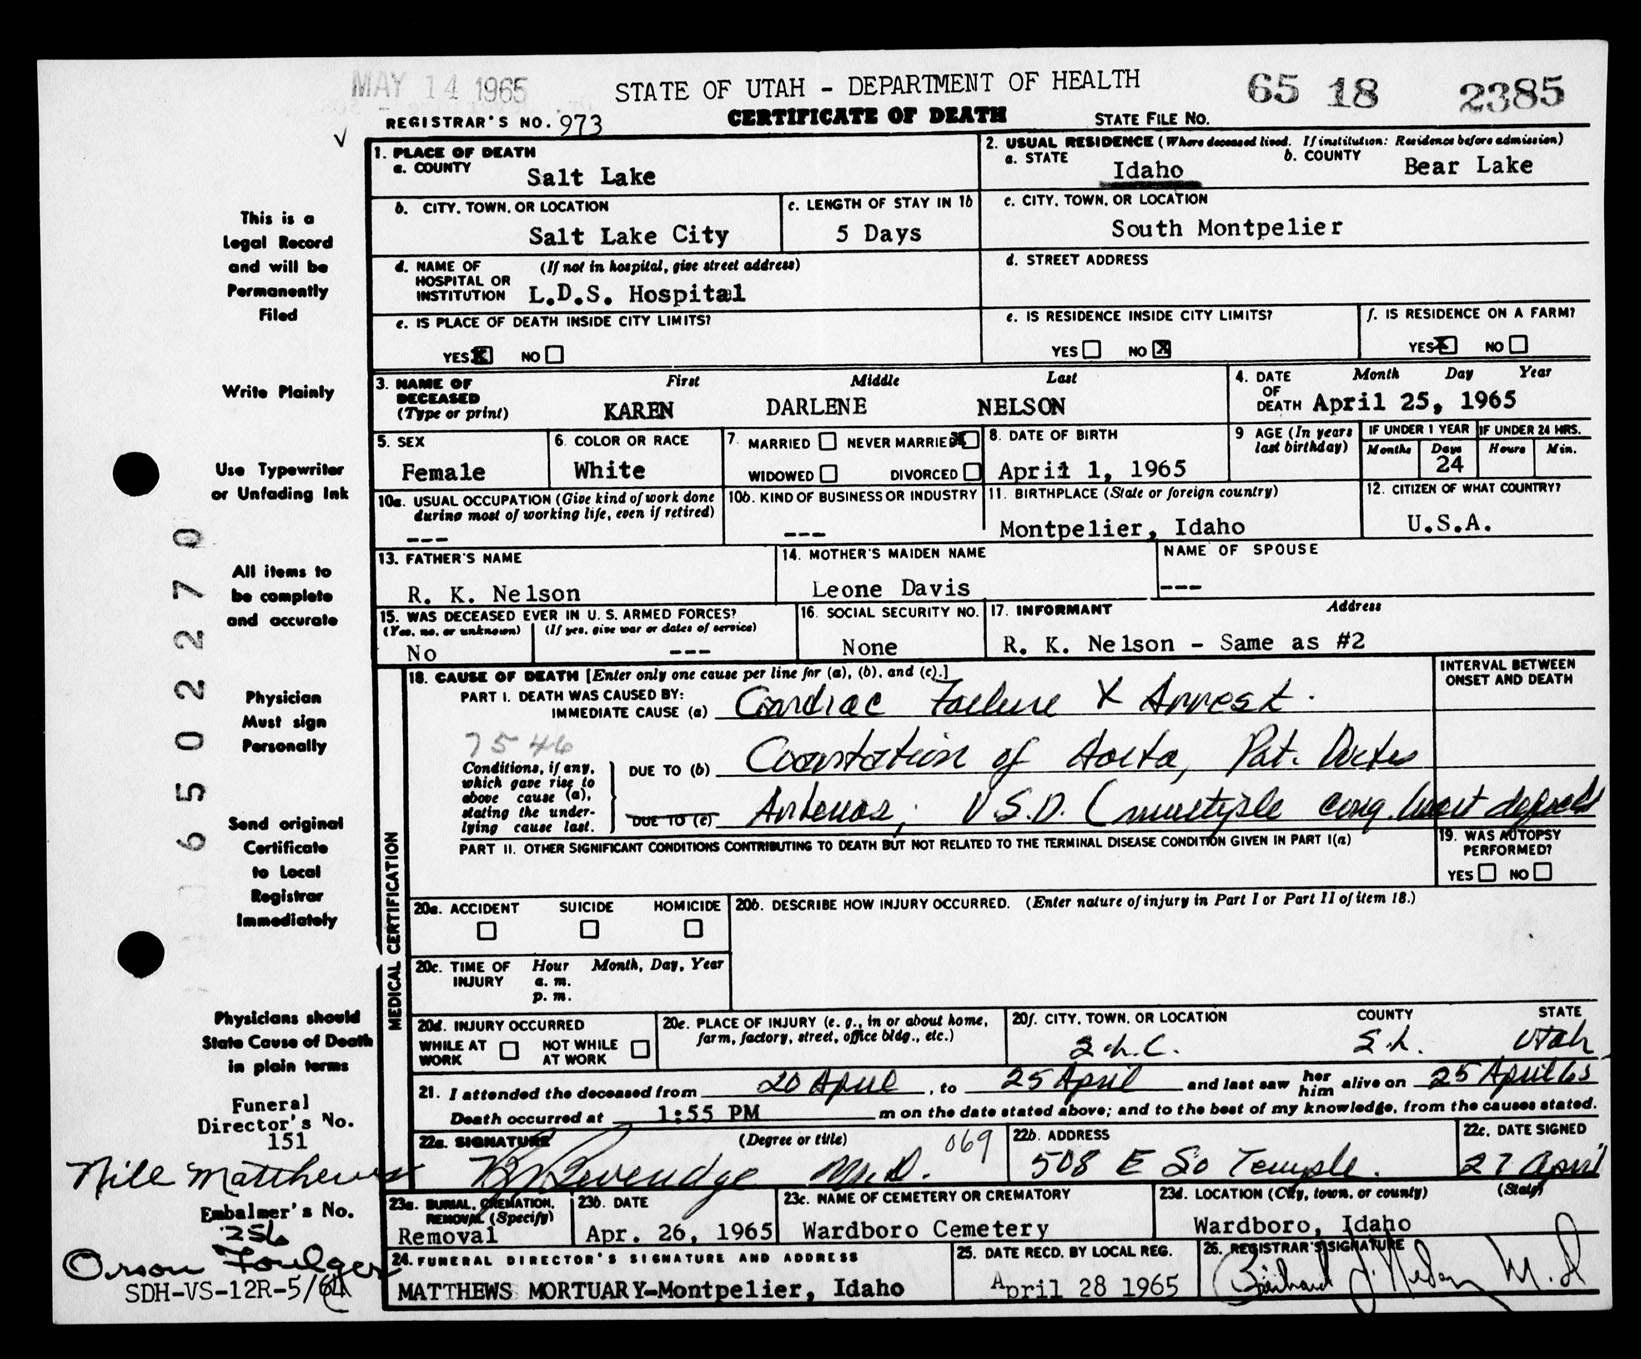 MAY 14 1965
STATE OF UTAH - DEPARTMENT OF HEALTH
65 18 2385
REGISTRAR'S NO. 973
CERTIFICATE OF DEATH
STATE FILE NO.
1. PLACE OF DEATH
a. COUNTY
Salt Lake
2. USUAL RESIDENCE (Where deceased lived. If institution: Residence before admission)
a. STATE
Idaho
b. COUNTY
Bear Lake
b. CITY, TOWN, OR LOCATION
Salt Lake City
c. LENGTH OF STAY IN 1b
5 Days
c. CITY, TOWN, OR LOCATION
South Montpelier
d. NAME OF HOSPITAL OR INSTITUTION
(If not in hospital, give street address)
L.D.S. Hospital
d. STREET ADDRESS
e. IS PLACE OF DEATH INSIDE CITY LIMITS?
YES X NO
e. IS RESIDENCE INSIDE CITY LIMITS?
YES NO X
f. IS RESIDENCE ON A FARM?
YES X NO
3. NAME OF DECEASED (Type or print)
First Middle Last
KAREN DARLENE NELSON
4. DATE OF DEATH
Month Day Year
April 25, 1965
5. SEX
Female
6. COLOR OR RACE
White
7. MARRIED NEVER MARRIED X
WIDOWED DIVORCED
8. DATE OF BIRTH
April 1, 1965
9 AGE (In years last birthday)
IF UNDER 1 YEAR
Months Days
24
IF UNDER 24 HRS.
Hours Min.
10a. USUAL OCCUPATION (Give kind of work done during most of working life, even if retired)
---
10b. KIND OF BUSINESS OR INDUSTRY
---
11. BIRTHPLACE (State or foreign country)
Montpelier, Idaho
12. CITIZEN OF WHAT COUNTRY?
U.S.A.
13. FATHER'S NAME
R. K. Nelson
14. MOTHER'S MAIDEN NAME
Leone Davis
NAME OF SPOUSE
---
15. WAS DECEASED EVER IN U.S. ARMED FORCES?
(Yes, no, or unknown) (If yes, give war or dates of service)
No ---
16. SOCIAL SECURITY NO.
None
17. INFORMANT Address
R. K. Nelson - Same as #2
MEDICAL CERTIFICATION
18. CAUSE OF DEATH [Enter only one cause per line for (a), (b), and (c).]
INTERVAL BETWEEN ONSET AND DEATH
PART I. DEATH WAS CAUSED BY:
IMMEDIATE CAUSE (a) Cardiac Failure & Arrest.
7546
Conditions, if any, which gave rise to above cause (a), stating the underlying cause last.
DUE TO (b) Coarctation of Aorta, Pat. Ductus
DUE TO (c) Arteriosus, V.S.D. (multiple cong. heart defects
PART II. OTHER SIGNIFICANT CONDITIONS CONTRIBUTING TO DEATH BUT NOT RELATED TO THE TERMINAL DISEASE CONDITION GIVEN IN PART I(a)
19. WAS AUTOPSY PERFORMED?
YES NO
20a. ACCIDENT SUICIDE HOMICIDE
20b. DESCRIBE HOW INJURY OCCURRED. (Enter nature of injury in Part I or Part II of item 18.)
20c. TIME OF INJURY
Hour Month, Day, Year
a. m.
p. m.
20d. INJURY OCCURRED
WHILE AT WORK NOT WHILE AT WORK
20e. PLACE OF INJURY (e. g., in or about home, farm, factory, street, office bldg., etc.)
20f. CITY, TOWN, OR LOCATION COUNTY STATE
S.L.C. S.L. Utah
21. I attended the deceased from 20 April, to 25 April and last saw her him alive on 25 April 65
Death occurred at 1:55 PM m on the date stated above; and to the best of my knowledge, from the causes stated.
22a. SIGNATURE (Degree or title)
Beveridge M.D. 069
22b. ADDRESS
508 E So Temple.
22c. DATE SIGNED
27 April
23a. BURIAL, CREMATION, REMOVAL (Specify)
Removal
23b. DATE
Apr. 26, 1965
23c. NAME OF CEMETERY OR CREMATORY
Wardboro Cemetery
23d. LOCATION (City, town, or county) (State)
Wardboro, Idaho
24. FUNERAL DIRECTOR'S SIGNATURE AND ADDRESS
MATTHEWS MORTUARY-Montpelier, Idaho
25. DATE RECD. BY LOCAL REG.
April 28 1965
26. REGISTRAR'S SIGNATURE
M.D
This is a
Legal Record
and will be
Permanently
Filed
Write Plainly
Use Typewriter
or Unfading Ink
All items to
be complete
and accurate
Physician
Must sign
Personally
Send original
Certificate
to Local
Registrar
Immediately
Physicians should
State Cause of Death
in plain terms
Funeral
Director's No.
151
Nile Matthews
Embalmer's No.
256
Orson Foulger
SDH-VS-12R-5/64
065022270